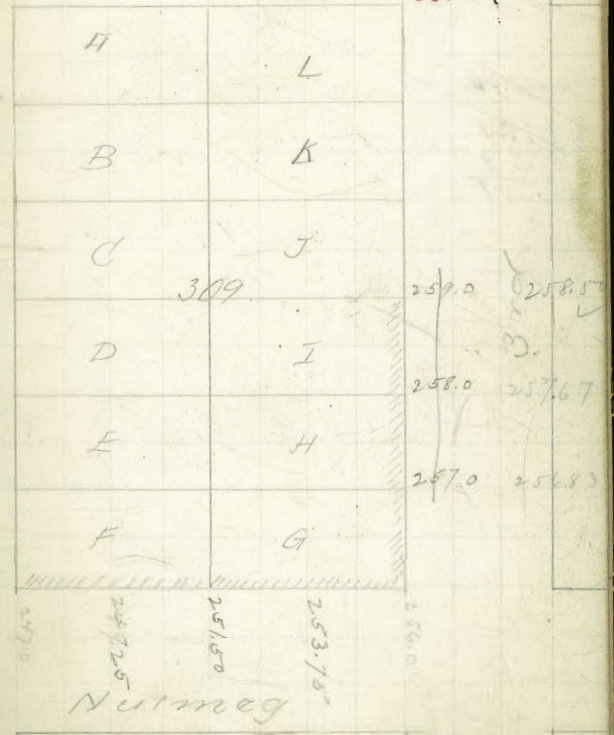 A L
B K
C J
309 259.0 258.50
D I
258.0 257.67
E H
257.0 256.83
F G
247.0 249.25 251.50 253.75 256.0
Nutmeg